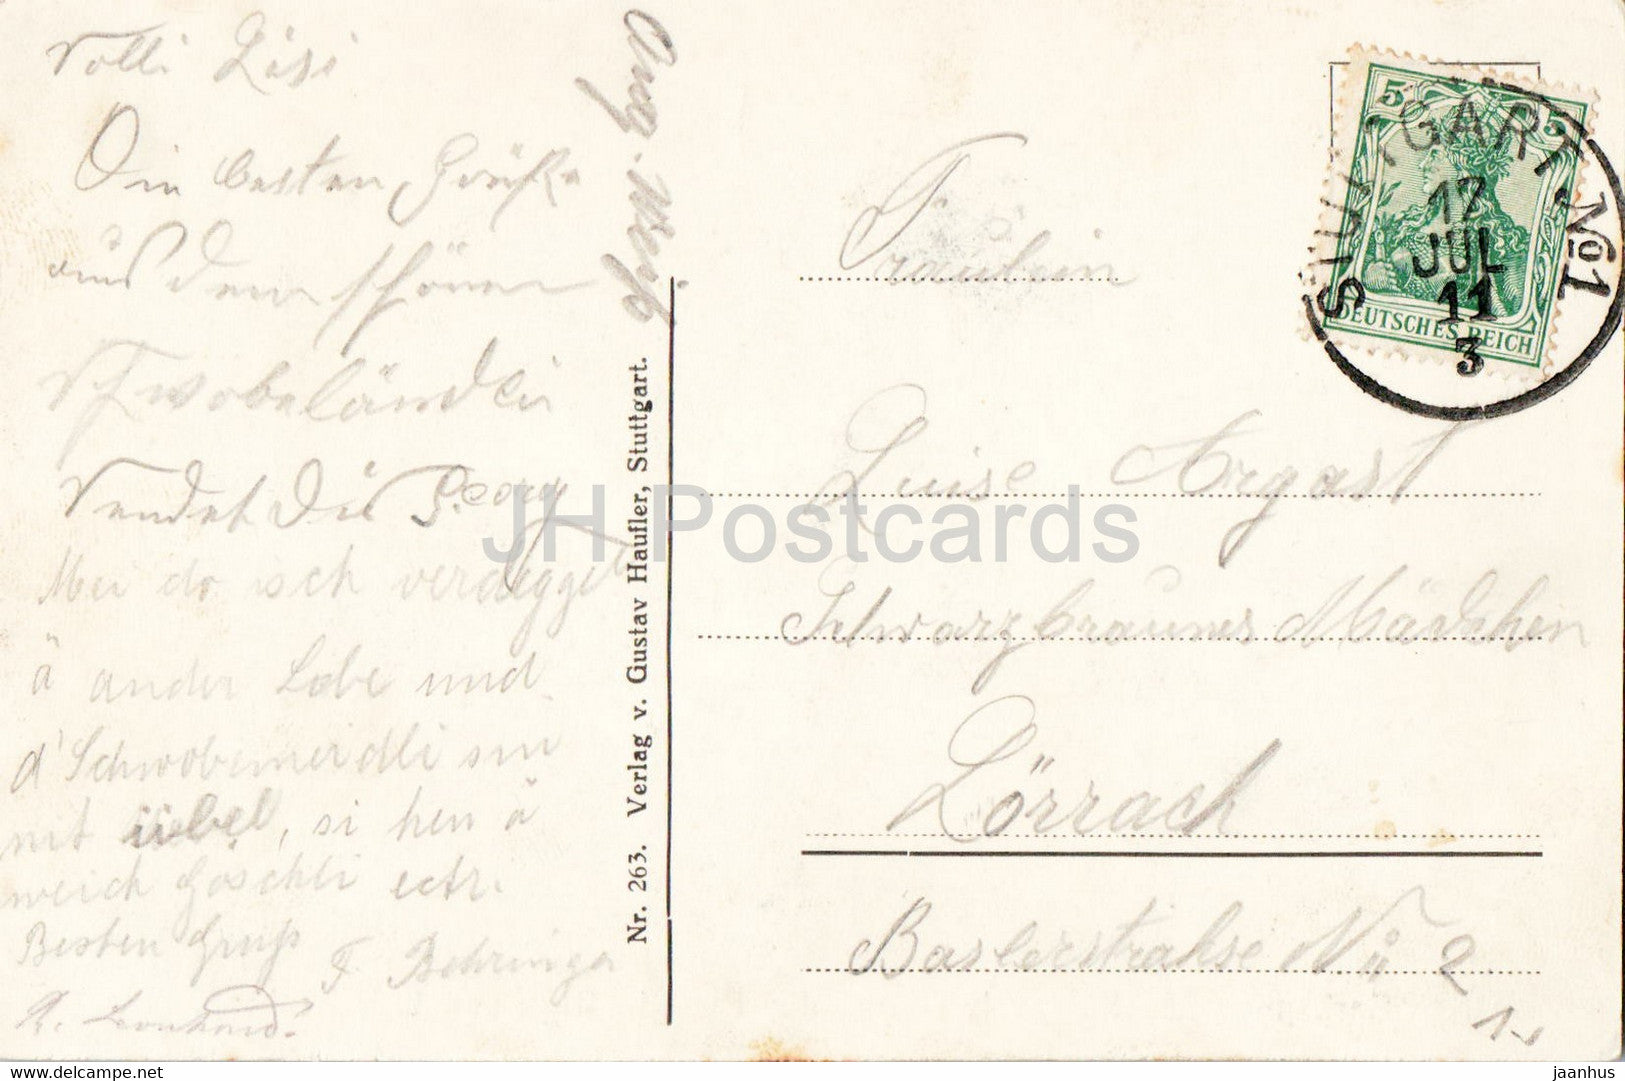 Die besten Grüße
aus dem schönen
Schwobeländli
sendet dir Georg
Mei do isch verdeggel
ä ander Lebe und
d'Schwobemeidli sin
nit üübel, si hen ä
weich Goschli ectr.
Besten Gruß
F Behringer
Nr. 263. Verlag v. Gustav Haufler, Stuttgart.
STUTTGART No1
17
JUL
11
3
5 5
DEUTSCHES REICH
Fräulein
Luise Argast
Schwarzbraunes Mädchen
Lörrach
Baslerstrahse No 2
JH Postcards
delcampe.net
jaanhus